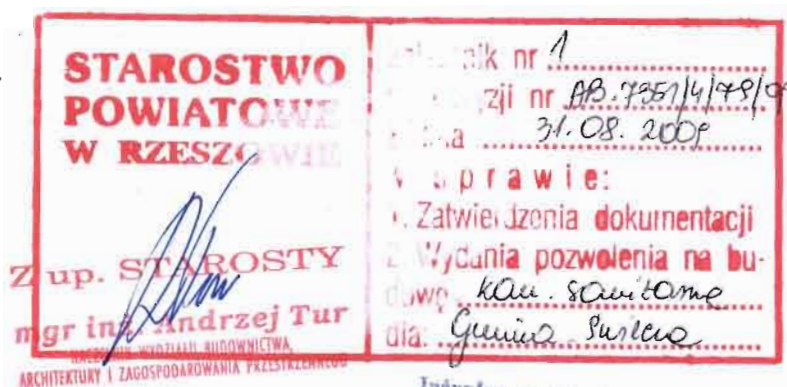 STAROSTWO
POWIATOWE
W RZESZOWIE
Z up. STAROSTY
mgr inż. Andrzej Tur
NACZELNIK WYDZIAŁU BUDOWNICTWA,
ARCHITEKTURY I ZAGOSPODAROWANIA PRZESTRZENNEGO
nr 1
zji nr AB.7351/4/79/0
31.08.2009
sprawie:
1. Zatwierdzenia dokumentacji
2. Wydania pozwolenia na bu-
dowę kan. sanitarne
dla: Gmina